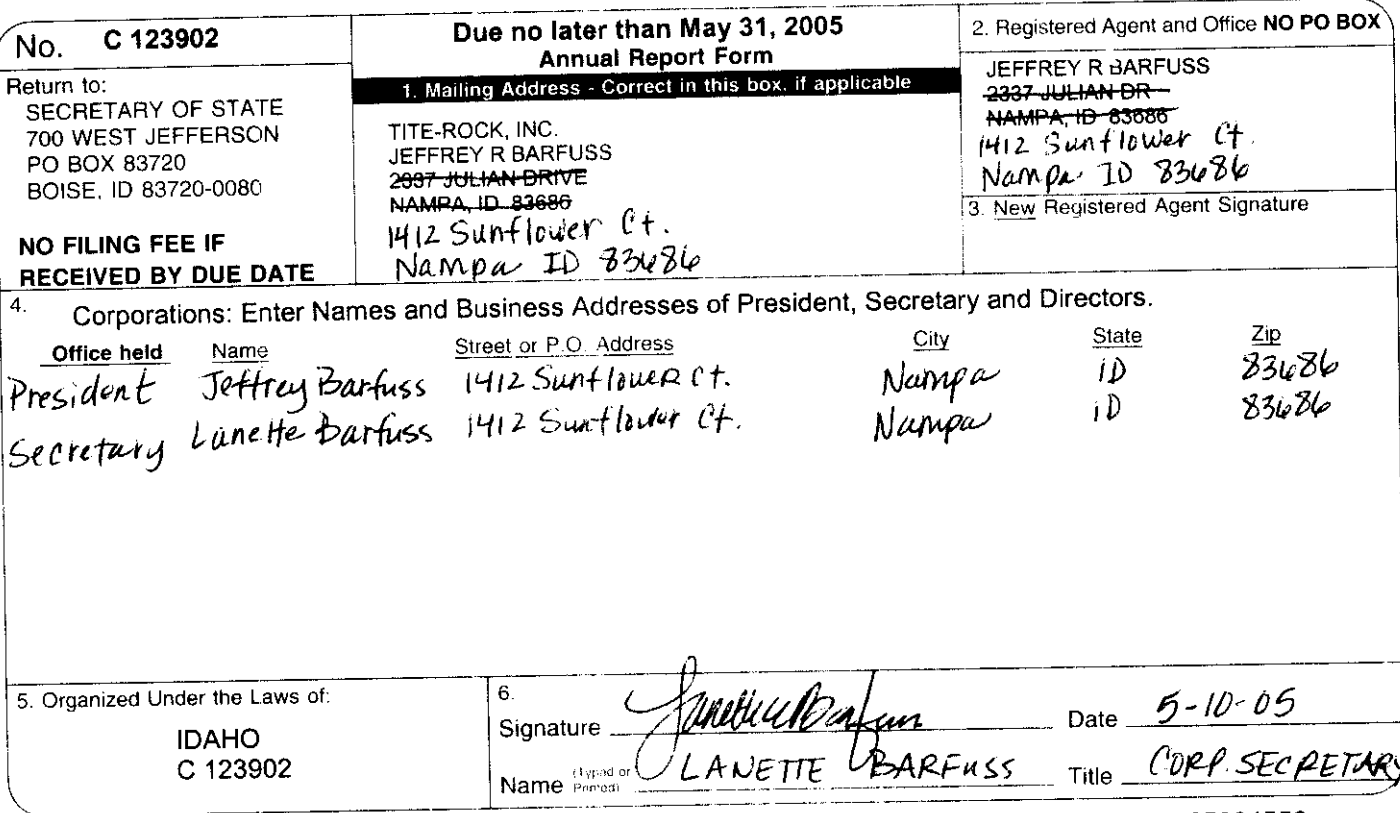 No. C 123902
Return to:
SECRETARY OF STATE
700 WEST JEFFERSON
PO BOX 83720
BOISE, ID 83720-0080
NO FILING FEE IF
RECEIVED BY DUE DATE
Due no later than May 31, 2005
Annual Report Form
1. Mailing Address - Correct in this box, if applicable
TITE-ROCK, INC.
JEFFREY R BARFUSS
2337 JULIAN DRIVE
NAMPA, ID 83686
1412 Sunflower Ct.
Nampa ID 83686
2. Registered Agent and Office NO PO BOX
JEFFREY R BARFUSS
2337 JULIAN DR
NAMPA, ID 83686
1412 Sunflower Ct.
Nampa ID 83686
3. New Registered Agent Signature
4. Corporations: Enter Names and Business Addresses of President, Secretary and Directors.
Office held Name Street or P.O. Address City State Zip
President Jeffrey Barfuss 1412 Sunflower Ct. Nampa ID 83686
Secretary Lanette Barfuss 1412 Sunflower Ct. Nampa ID 83686
5. Organized Under the Laws of:
IDAHO
C 123902
6.
Signature Lanette Barfuss Date 5-10-05
Name (Typed or Printed) LANETTE BARFUSS Title CORP. SECRETARY